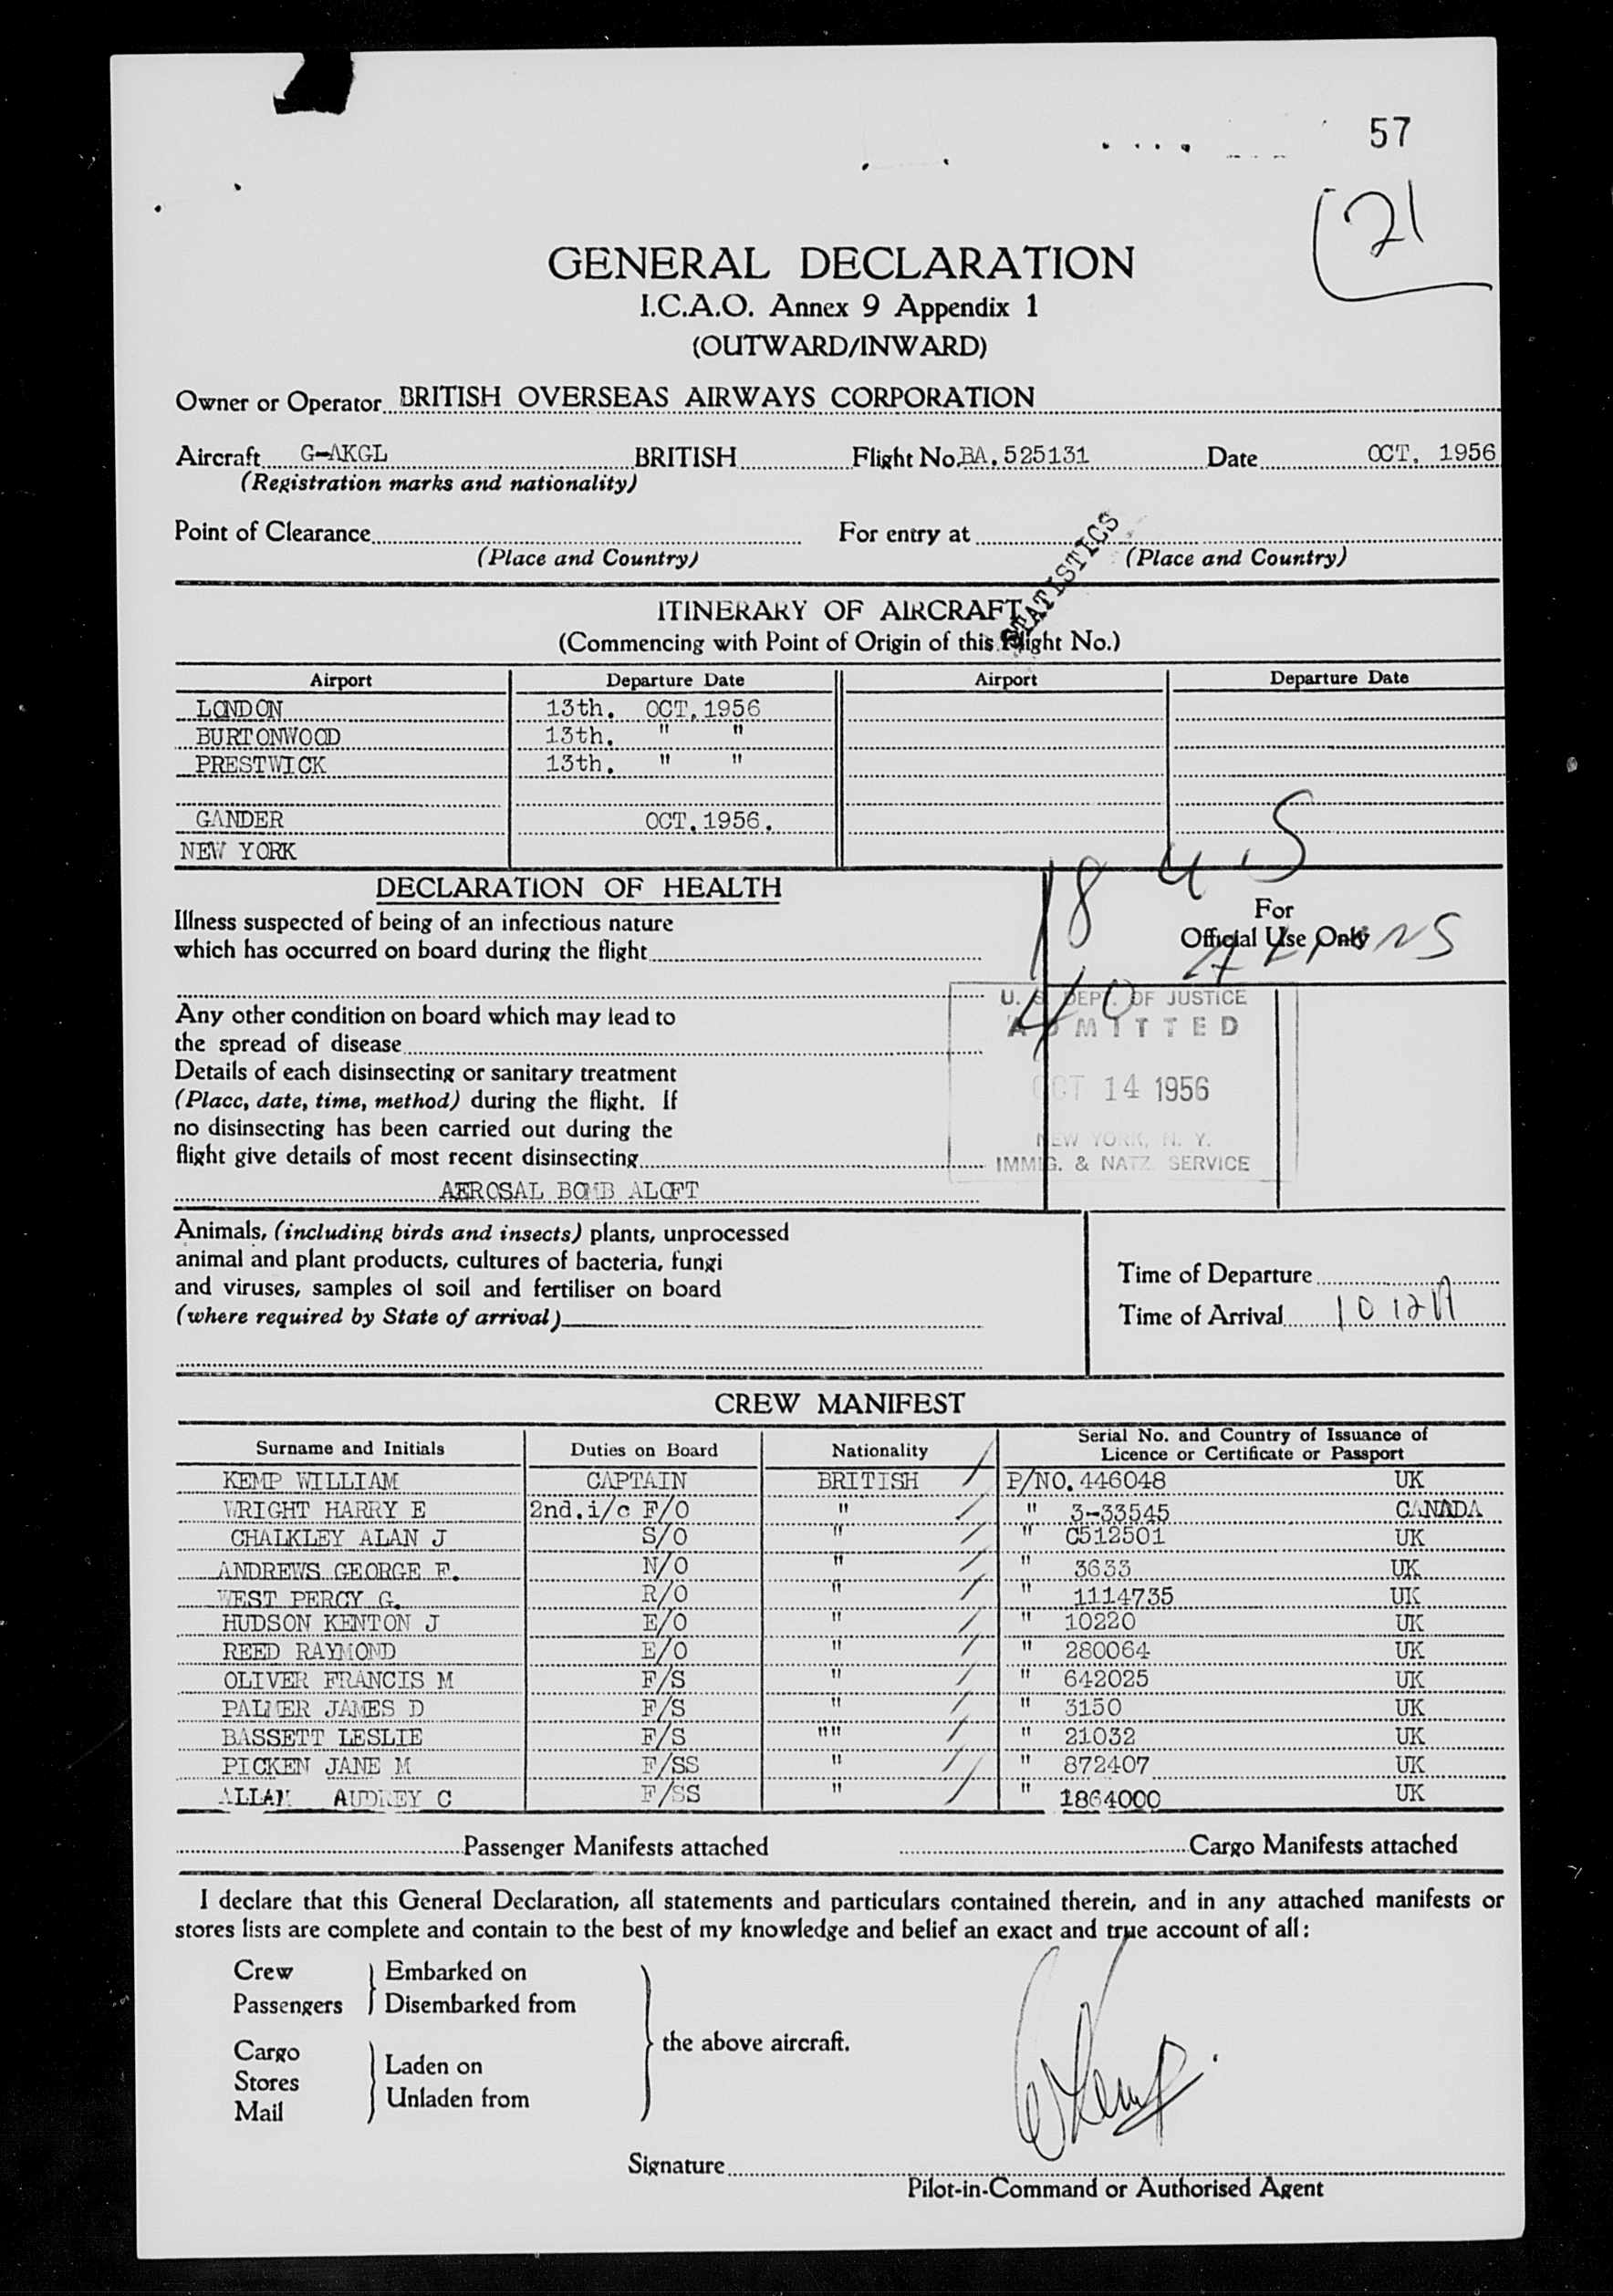 57
21
GENERAL DECLARATION
I.C.A.O. Annex 9 Appendix 1
(OUTWARD/INWARD)
Owner or Operator BRITISH OVERSEAS AIRWAYS CORPORATION
Aircraft G-AKGL BRITISH Flight No. BA. 525131 Date OCT. 1956
(Registration marks and nationality)
Point of Clearance For entry at
(Place and Country) (Place and Country)
STATISTICS
ITINERARY OF AIRCRAFT
(Commencing with Point of Origin of this Flight No.)
Airport Departure Date Airport Departure Date
LONDON 13th. OCT. 1956
BURTONWOOD 13th. " "
PRESTWICK 13th. " "
GANDER OCT. 1956.
NEW YORK
18 45
DECLARATION OF HEALTH
For
Official Use Only
Illness suspected of being of an infectious nature
which has occurred on board during the flight
40
U. S. DEPT. OF JUSTICE
ADMITTED
OCT 14 1956
NEW YORK, N. Y.
IMMIG. & NATZ. SERVICE
Any other condition on board which may lead to
the spread of disease
Details of each disinsecting or sanitary treatment
(Place, date, time, method) during the flight. If
no disinsecting has been carried out during the
flight give details of most recent disinsecting
AEROSAL BOMB ALOFT
Animals, (including birds and insects) plants, unprocessed
animal and plant products, cultures of bacteria, fungi
and viruses, samples of soil and fertiliser on board
(where required by State of arrival)
Time of Departure
Time of Arrival
CREW MANIFEST
Surname and Initials Duties on Board Nationality Serial No. and Country of Issuance of Licence or Certificate or Passport
KEMP WILLIAM CAPTAIN BRITISH P/NO. 446048 UK
WRIGHT HARRY E 2nd.i/c F/O " " 3-33545 CANADA
CHALKLEY ALAN J S/O " " C512501 UK
ANDREWS GEORGE F. N/O " " 3633 UK
WEST PERCY G. R/O " " 1114735 UK
HUDSON KENTON J E/O " " 10220 UK
REED RAYMOND E/O " " 280064 UK
OLIVER FRANCIS M F/S " " 642025 UK
PALMER JAMES D F/S " " 3150 UK
BASSETT LESLIE F/S "" " 21032 UK
PICKEN JANE M F/SS " " 872407 UK
ALLAN AUDREY C F/SS " " 1864000 UK
Passenger Manifests attached Cargo Manifests attached
I declare that this General Declaration, all statements and particulars contained therein, and in any attached manifests or
stores lists are complete and contain to the best of my knowledge and belief an exact and true account of all:
Crew Embarked on
Passengers Disembarked from
the above aircraft.
Cargo
Stores Laden on
Mail Unladen from
WKemp
Signature
Pilot-in-Command or Authorised Agent